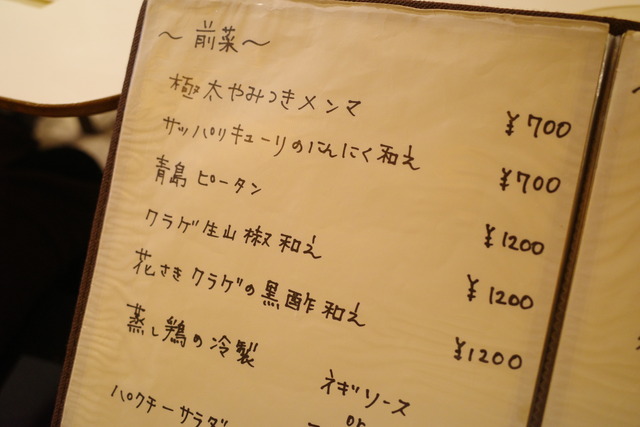 ～前菜～
極太やみつきメンマ ¥700
サッパリキューリのにんにく和え ¥700
青島ピータン ¥1200
クラゲ生山椒和え ¥1200
花さきクラゲの黒酢和え ¥1200
蒸し鶏の冷製
ネギソース
パクチーサラダ